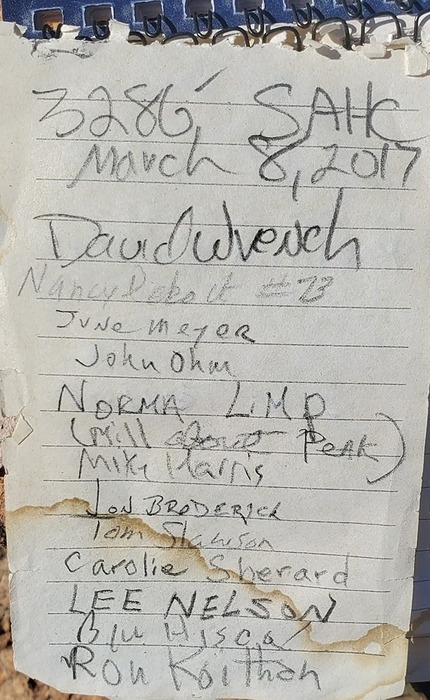 3286' SAHC
March 8, 2017
David Wrench
Nancy #73
June Meyer
John Ohm
NORMA LIMP
(Mill Peak)
Mike Harris
JON BRODERICK
Tom Slawson
Carolie Sherard
LEE NELSON
Ron